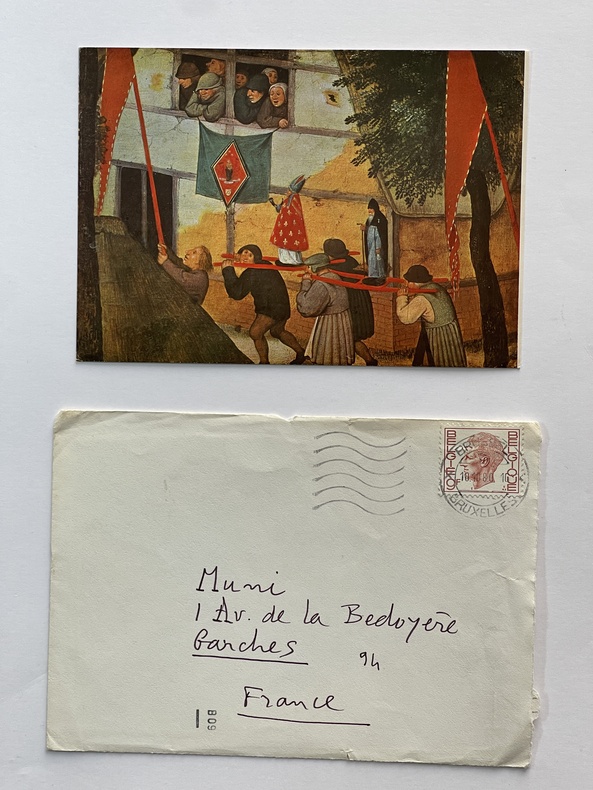 BELGIË
BELGIQUE
BRUSSEL
BRUXELLES
Muni
1 Av. de la Bedoyère
Garches
94
France
B09